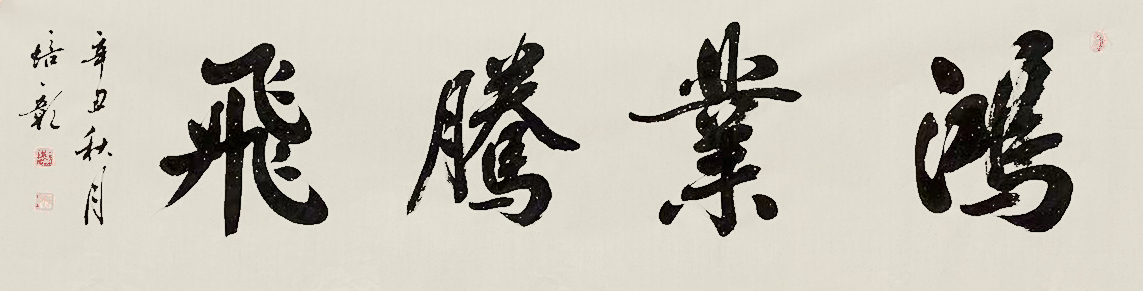 鴻業騰飛
辛丑秋月
培彰